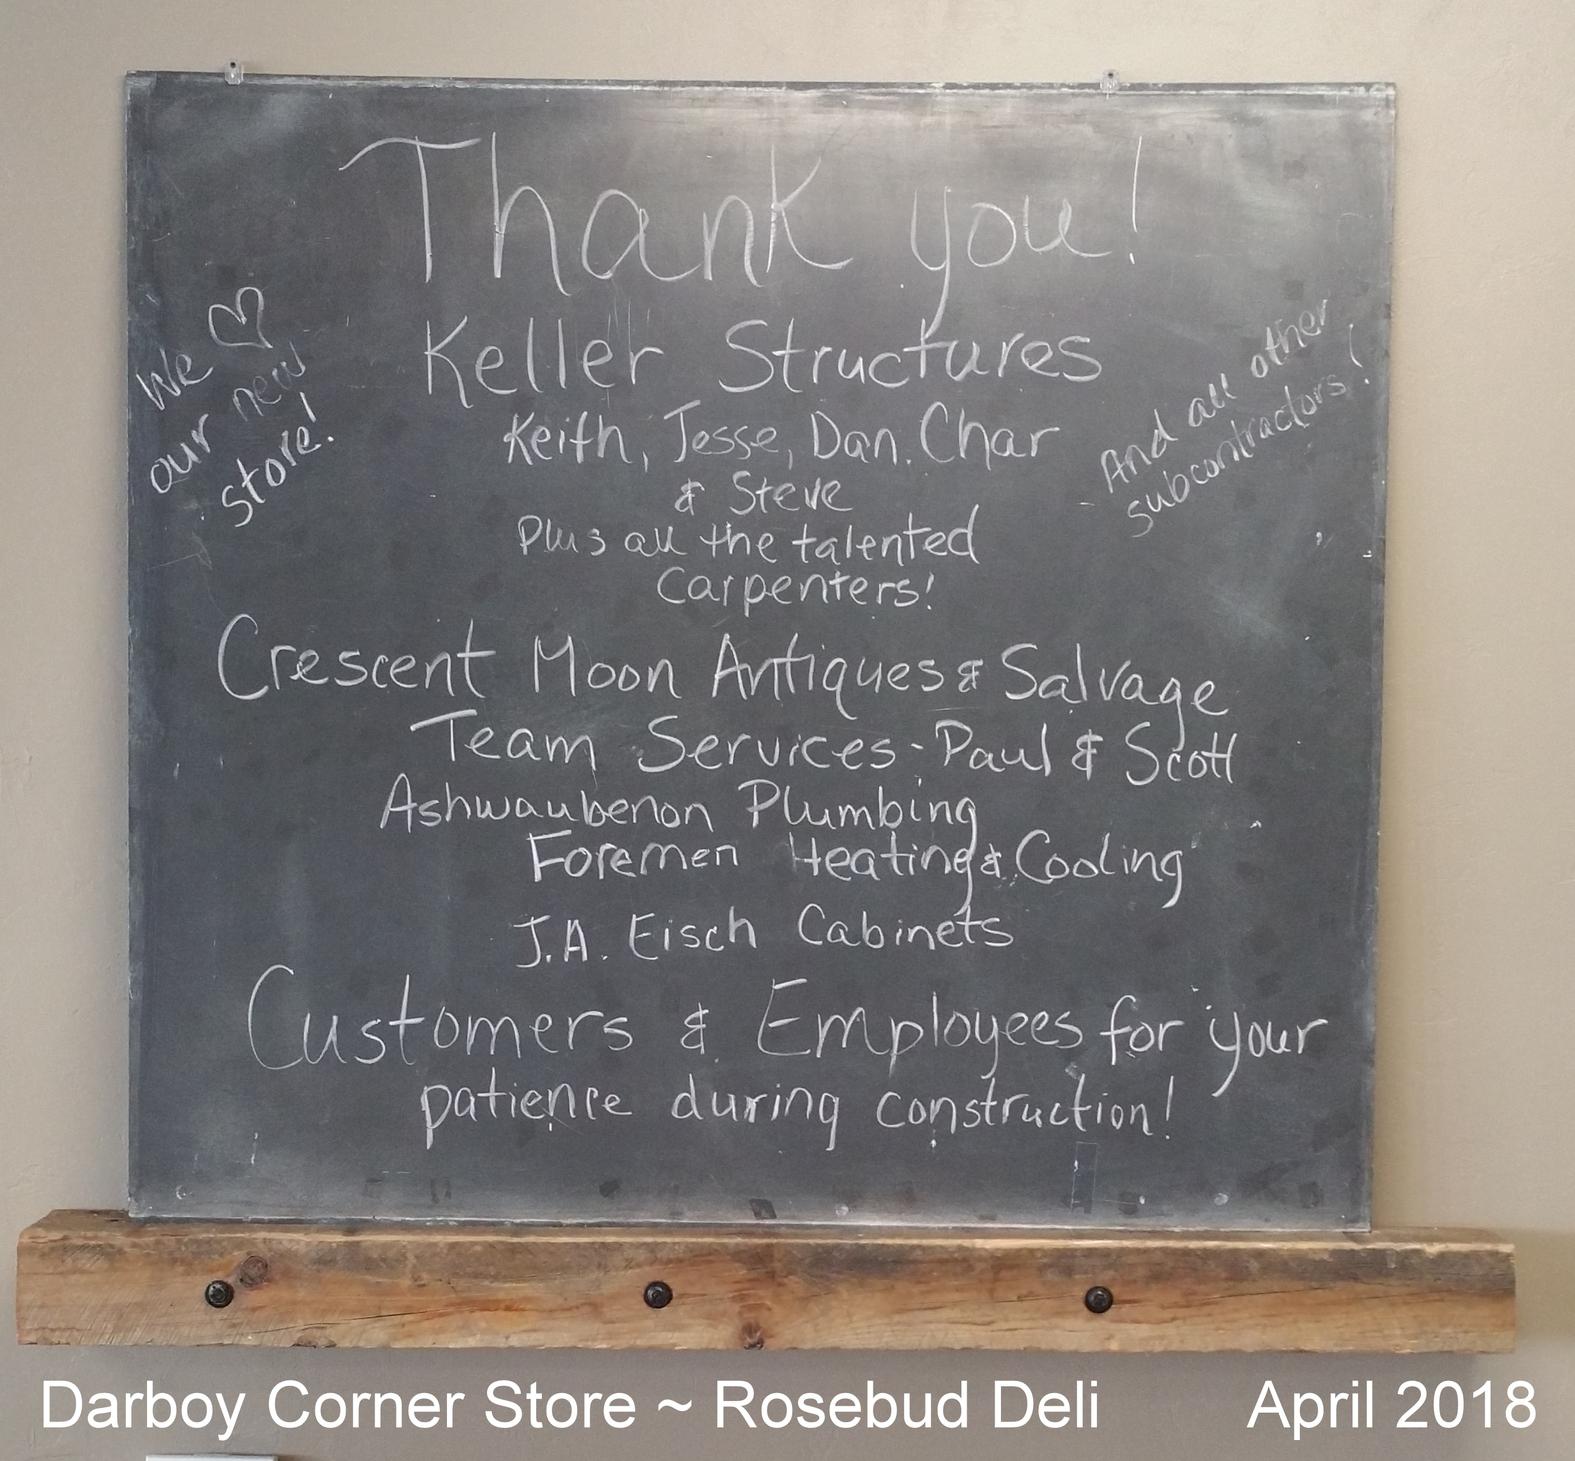 Thank you!
We ♡
our new
store!
Keller Structures
And all other
subcontractors!
Keith, Jesse, Dan, Char
& Steve
Plus all the talented
Carpenters!
Crescent Moon Antiques & Salvage
Team Services - Paul & Scott
Ashwaubenon Plumbing
Foremen Heating & Cooling
J.A. Eisch Cabinets
Customers & Employees for your
patience during construction!
Darboy Corner Store ~ Rosebud Deli April 2018